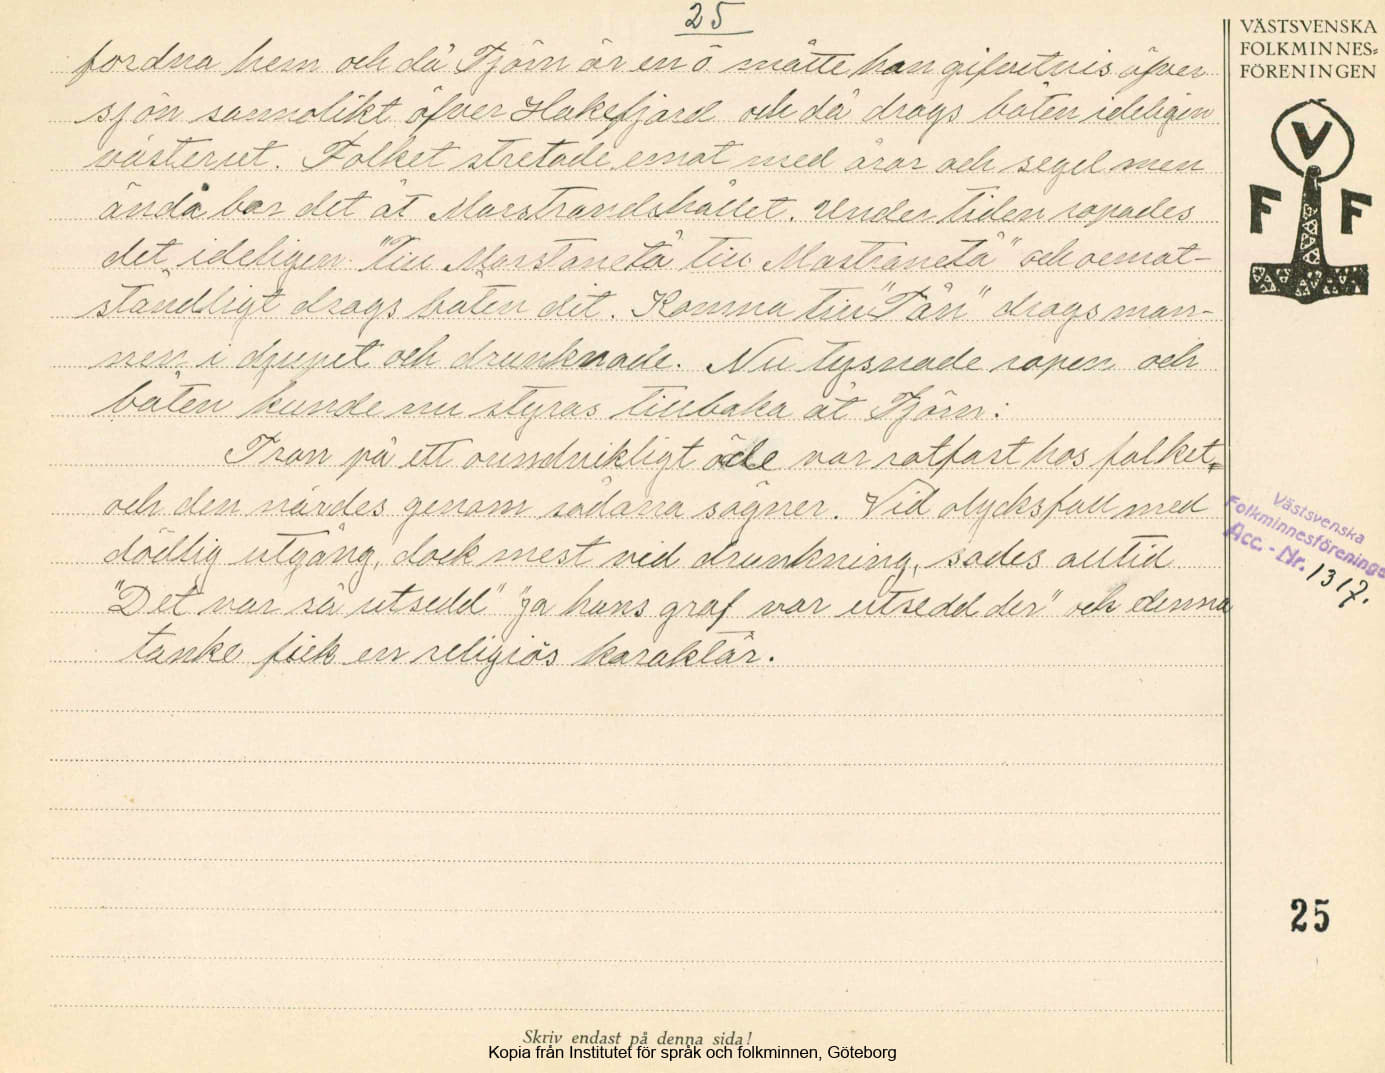 25
fordna hem och då Tjörn är en ö måtte han gifvetvis öfver
sjön sannolikt öfver Hakefjard och då drogs båten ideligen
västerut. Folket stretade emot med åror och segel men
ändå bar det åt Marstrandshållet. Under tiden ropades
det ideligen "till Marstanetå till Mastranetå" och oemot-
ståndligt drogs båten dit. Komna till "Tån" drogs man-
nen i djupet och drunknade. Nu tystnade ropen och
båten kunde nu styras tillbaka åt Tjörn:
Tron på ett oundvikligt öde var rotfast hos folket,
och den närdes genom sådana sägner. Vid olycksfall med
dödlig utgång, dock mest vid drunkning, sades alltid
"Det var så utsedd" "ja hans graf var utsedd der" och denna
tanke fick en religiös karaktär.
VÄSTSVENSKA
FOLKMINNES=
FÖRENINGEN
V
F F
Västsvenska
Folkminnesföreningen
Acc. - Nr. 1317.
25
Skriv endast på denna sida!
Kopia från Institutet för språk och folkminnen, Göteborg